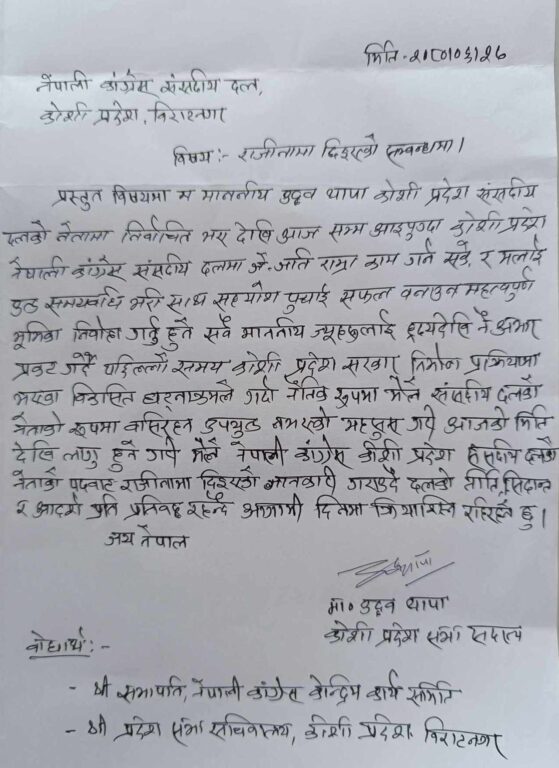 मिति-२०८०।०६।२६
नेपाली कांग्रेस संसदीय दल,
कोशी प्रदेश, विराटनगर
विषय:- राजीनामा दिइएको सम्बन्धमा।
प्रस्तुत विषयमा म माननीय उद्धव थापा कोशी प्रदेश संसदीय
दलको नेतामा निर्वाचित भए देखि आज सम्म आइपुग्दा कोशी प्रदेश
नेपाली कांग्रेस संसदीय दलमा जे-जति राम्रा काम गर्न सकें, र मलाई
पुरा समयावधि भरी साथ सहयोग पुर्‍याई सफल बनाउन महत्वपूर्ण
भूमिका निर्वाह गर्नु हुने सबै माननीय ज्यूहरुलाई हृदयदेखि नै आभार
प्रकट गर्दै पछिल्लो समय कोशी प्रदेश सरकार निर्माण प्रक्रियामा
भएका विकसित घटनाक्रमले गर्दा नैतिक रूपमा मैले संसदीय दलको
नेताको रूपमा बसिरहन उपयुक्त नभएको महसुस गरी आजको मिति
देखि लागु हुने गरी मैले नेपाली कांग्रेस कोशी प्रदेश संसदीय दलको
नेताको पदबाट राजीनामा दिइएको जानकारी गराउँदै दलको नीति, सिद्धान्त
र आदर्श प्रति प्रतिवद्ध रहँदै आगामी दिनमा क्रियाशिल रहिरहने छु।
जय नेपाल
मा० उद्धव थापा
कोशी प्रदेश सभा सदस्य
बोधार्थ:-
- श्री सभापति, नेपाली कांग्रेस केन्द्रिय कार्य समिति
- श्री प्रदेश सभा सचिवालय, कोशी प्रदेश विराटनगर